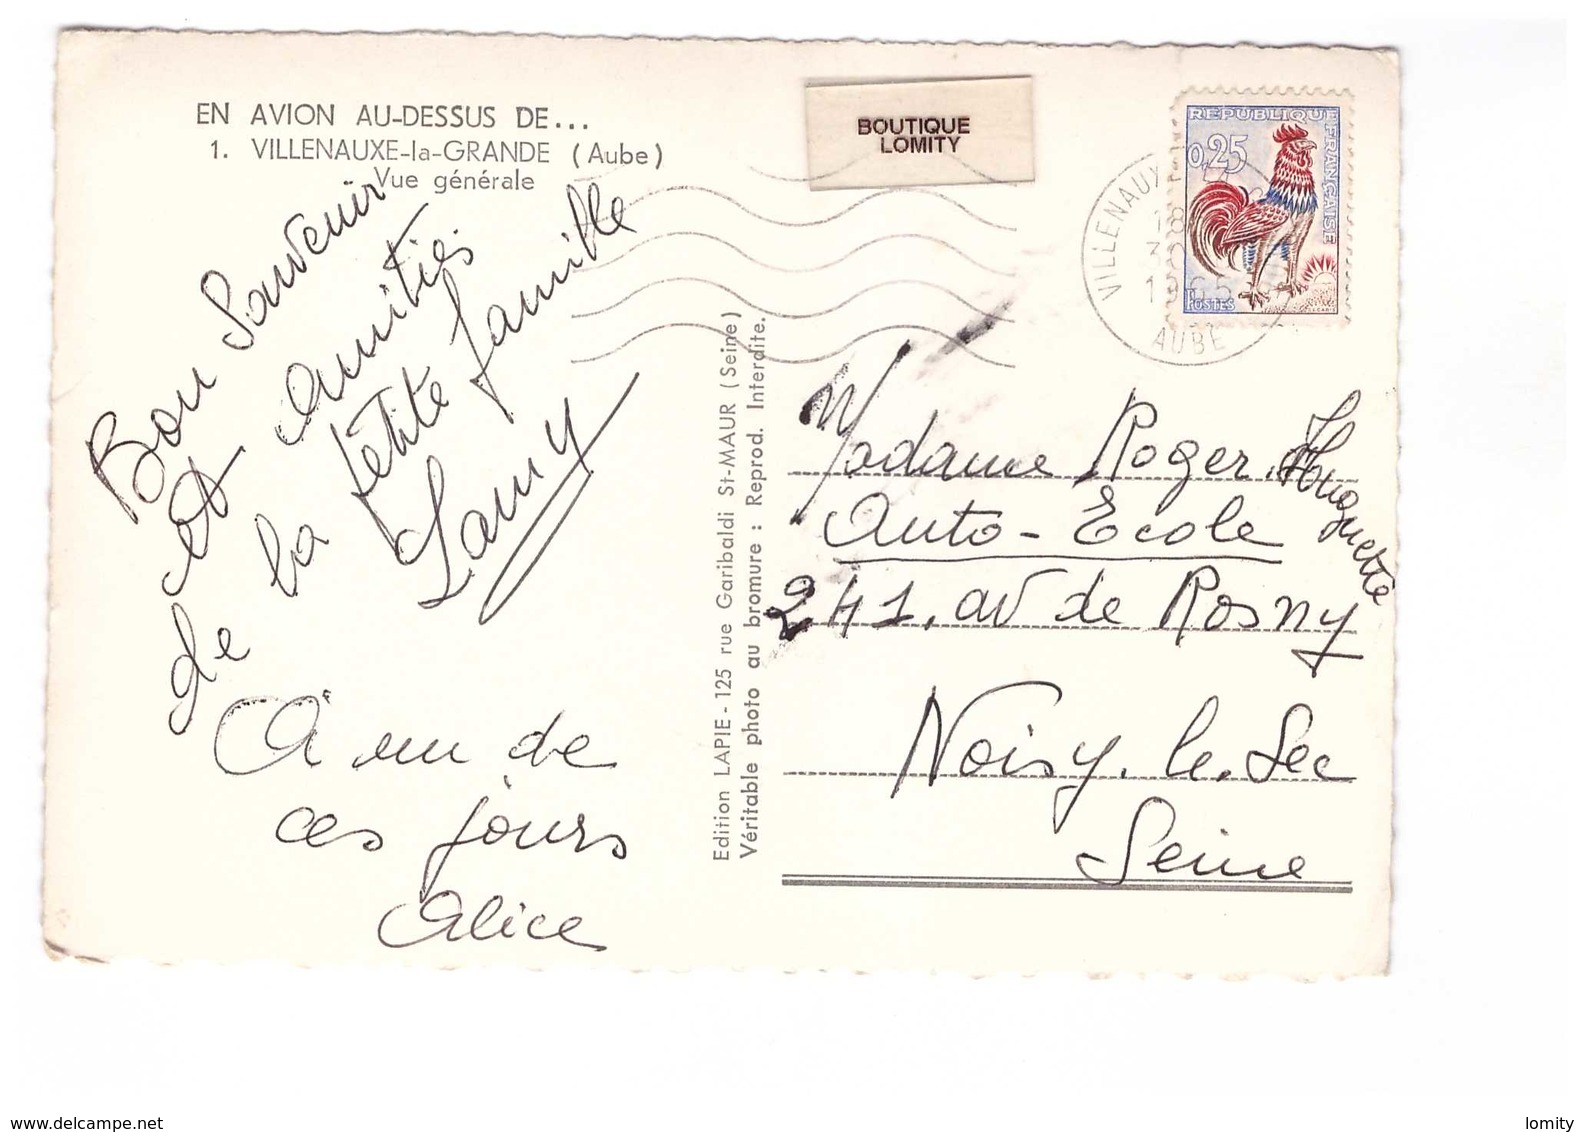 EN AVION AU-DESSUS DE...
1. VILLENAUXE-la-GRANDE (Aube)
Vue générale
Bon Souvenir
et amitiés
de la petite famille
Lamy
A un de
ces jours
Alice
Edition LAPIE - 125 rue Garibaldi St-MAUR (Seine)
Véritable photo au bromure : Reprod. Interdite.
BOUTIQUE
LOMITY
REPUBLIQUE FRANÇAISE
0,25
POSTES
VILLENAUX
18
3
1965
AUBE
Madame Roger Houguette
Auto-Ecole
241, av de Rosny
Noisy-le-Sec
Seine
www.delcampe.net
lomity